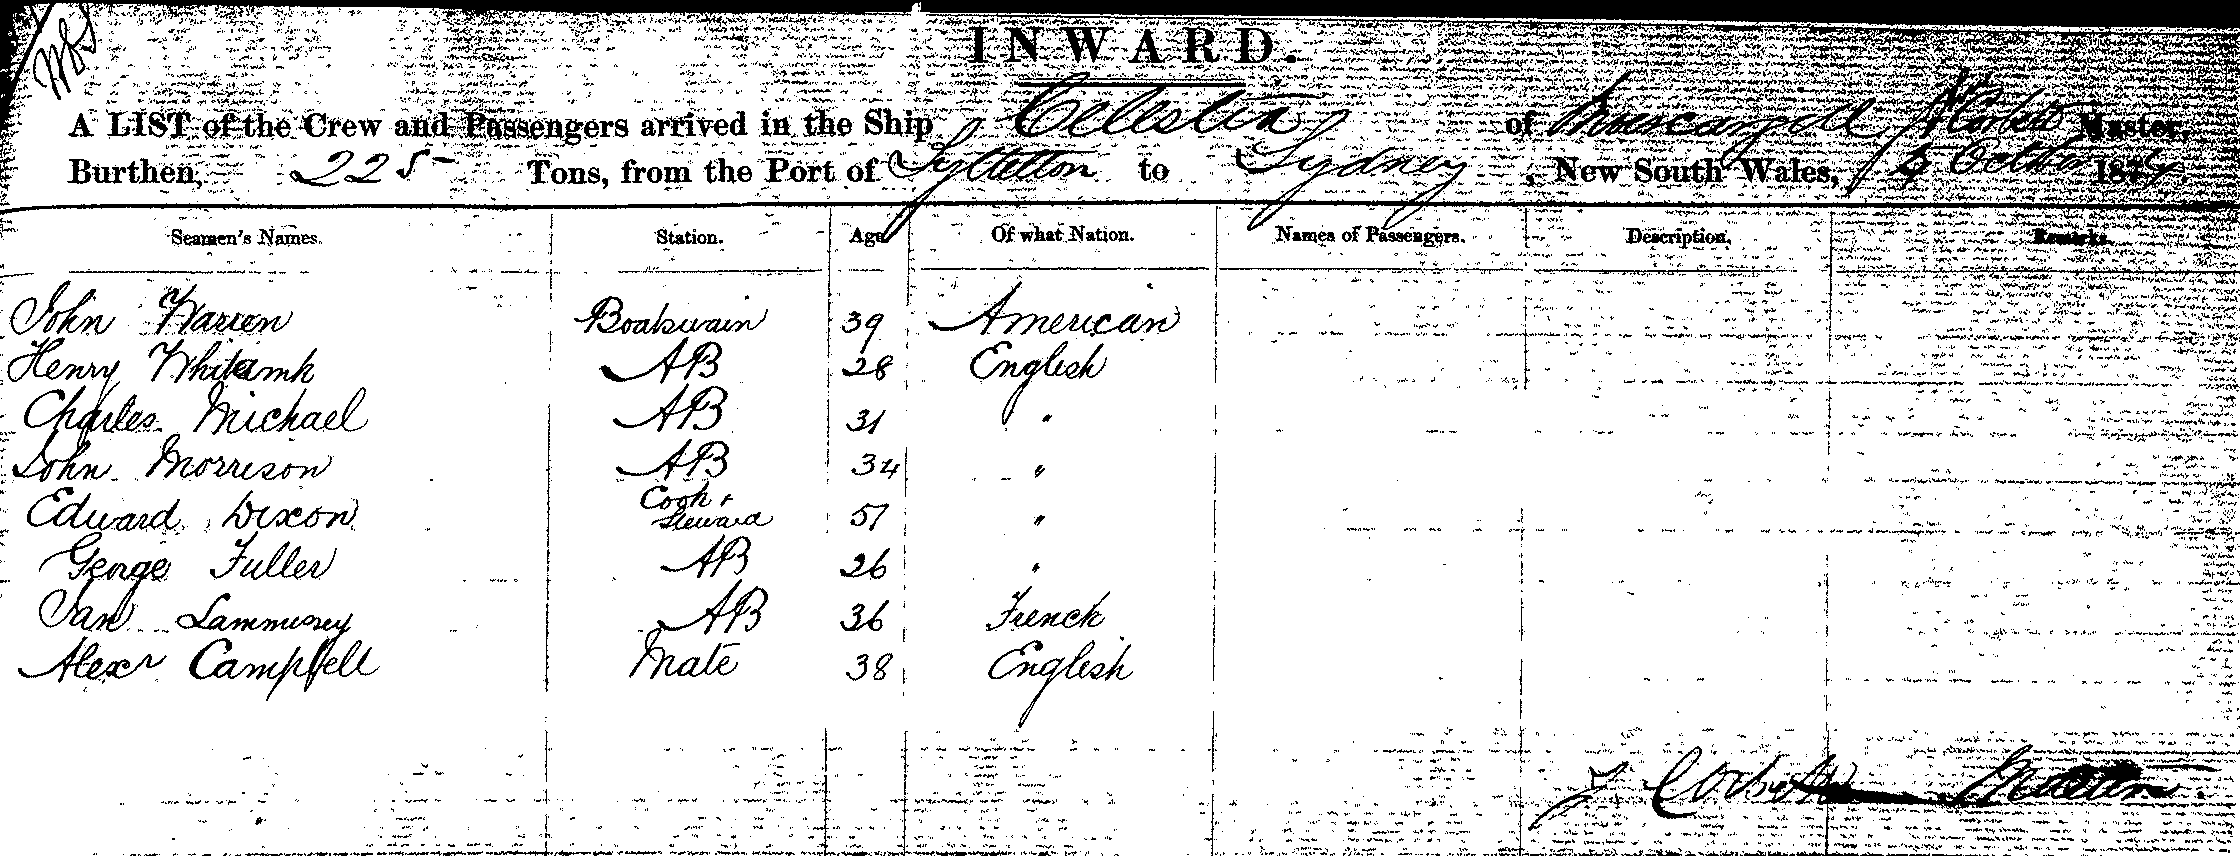 INWARD.
A LIST of the Crew and Passengers arrived in the Ship Celestia of Corbett Master,
Burthen, 225 Tons, from the Port of Lyttelton to Sydney, New South Wales, 5 October 187
Seamen's Names. Station. Age Of what Nation. Names of Passengers. Description. Remarks.
John Warren Boatswain 39 American
Henry 28 AB English
Charles Michael AB 31 "
John Morrison AB 34 "
Edward Dixon Cook + Steward 57 "
George Fuller AB 26 "
Jan AB 36 French
Alexr Campbell Mate 38 English
J Corbett Master.